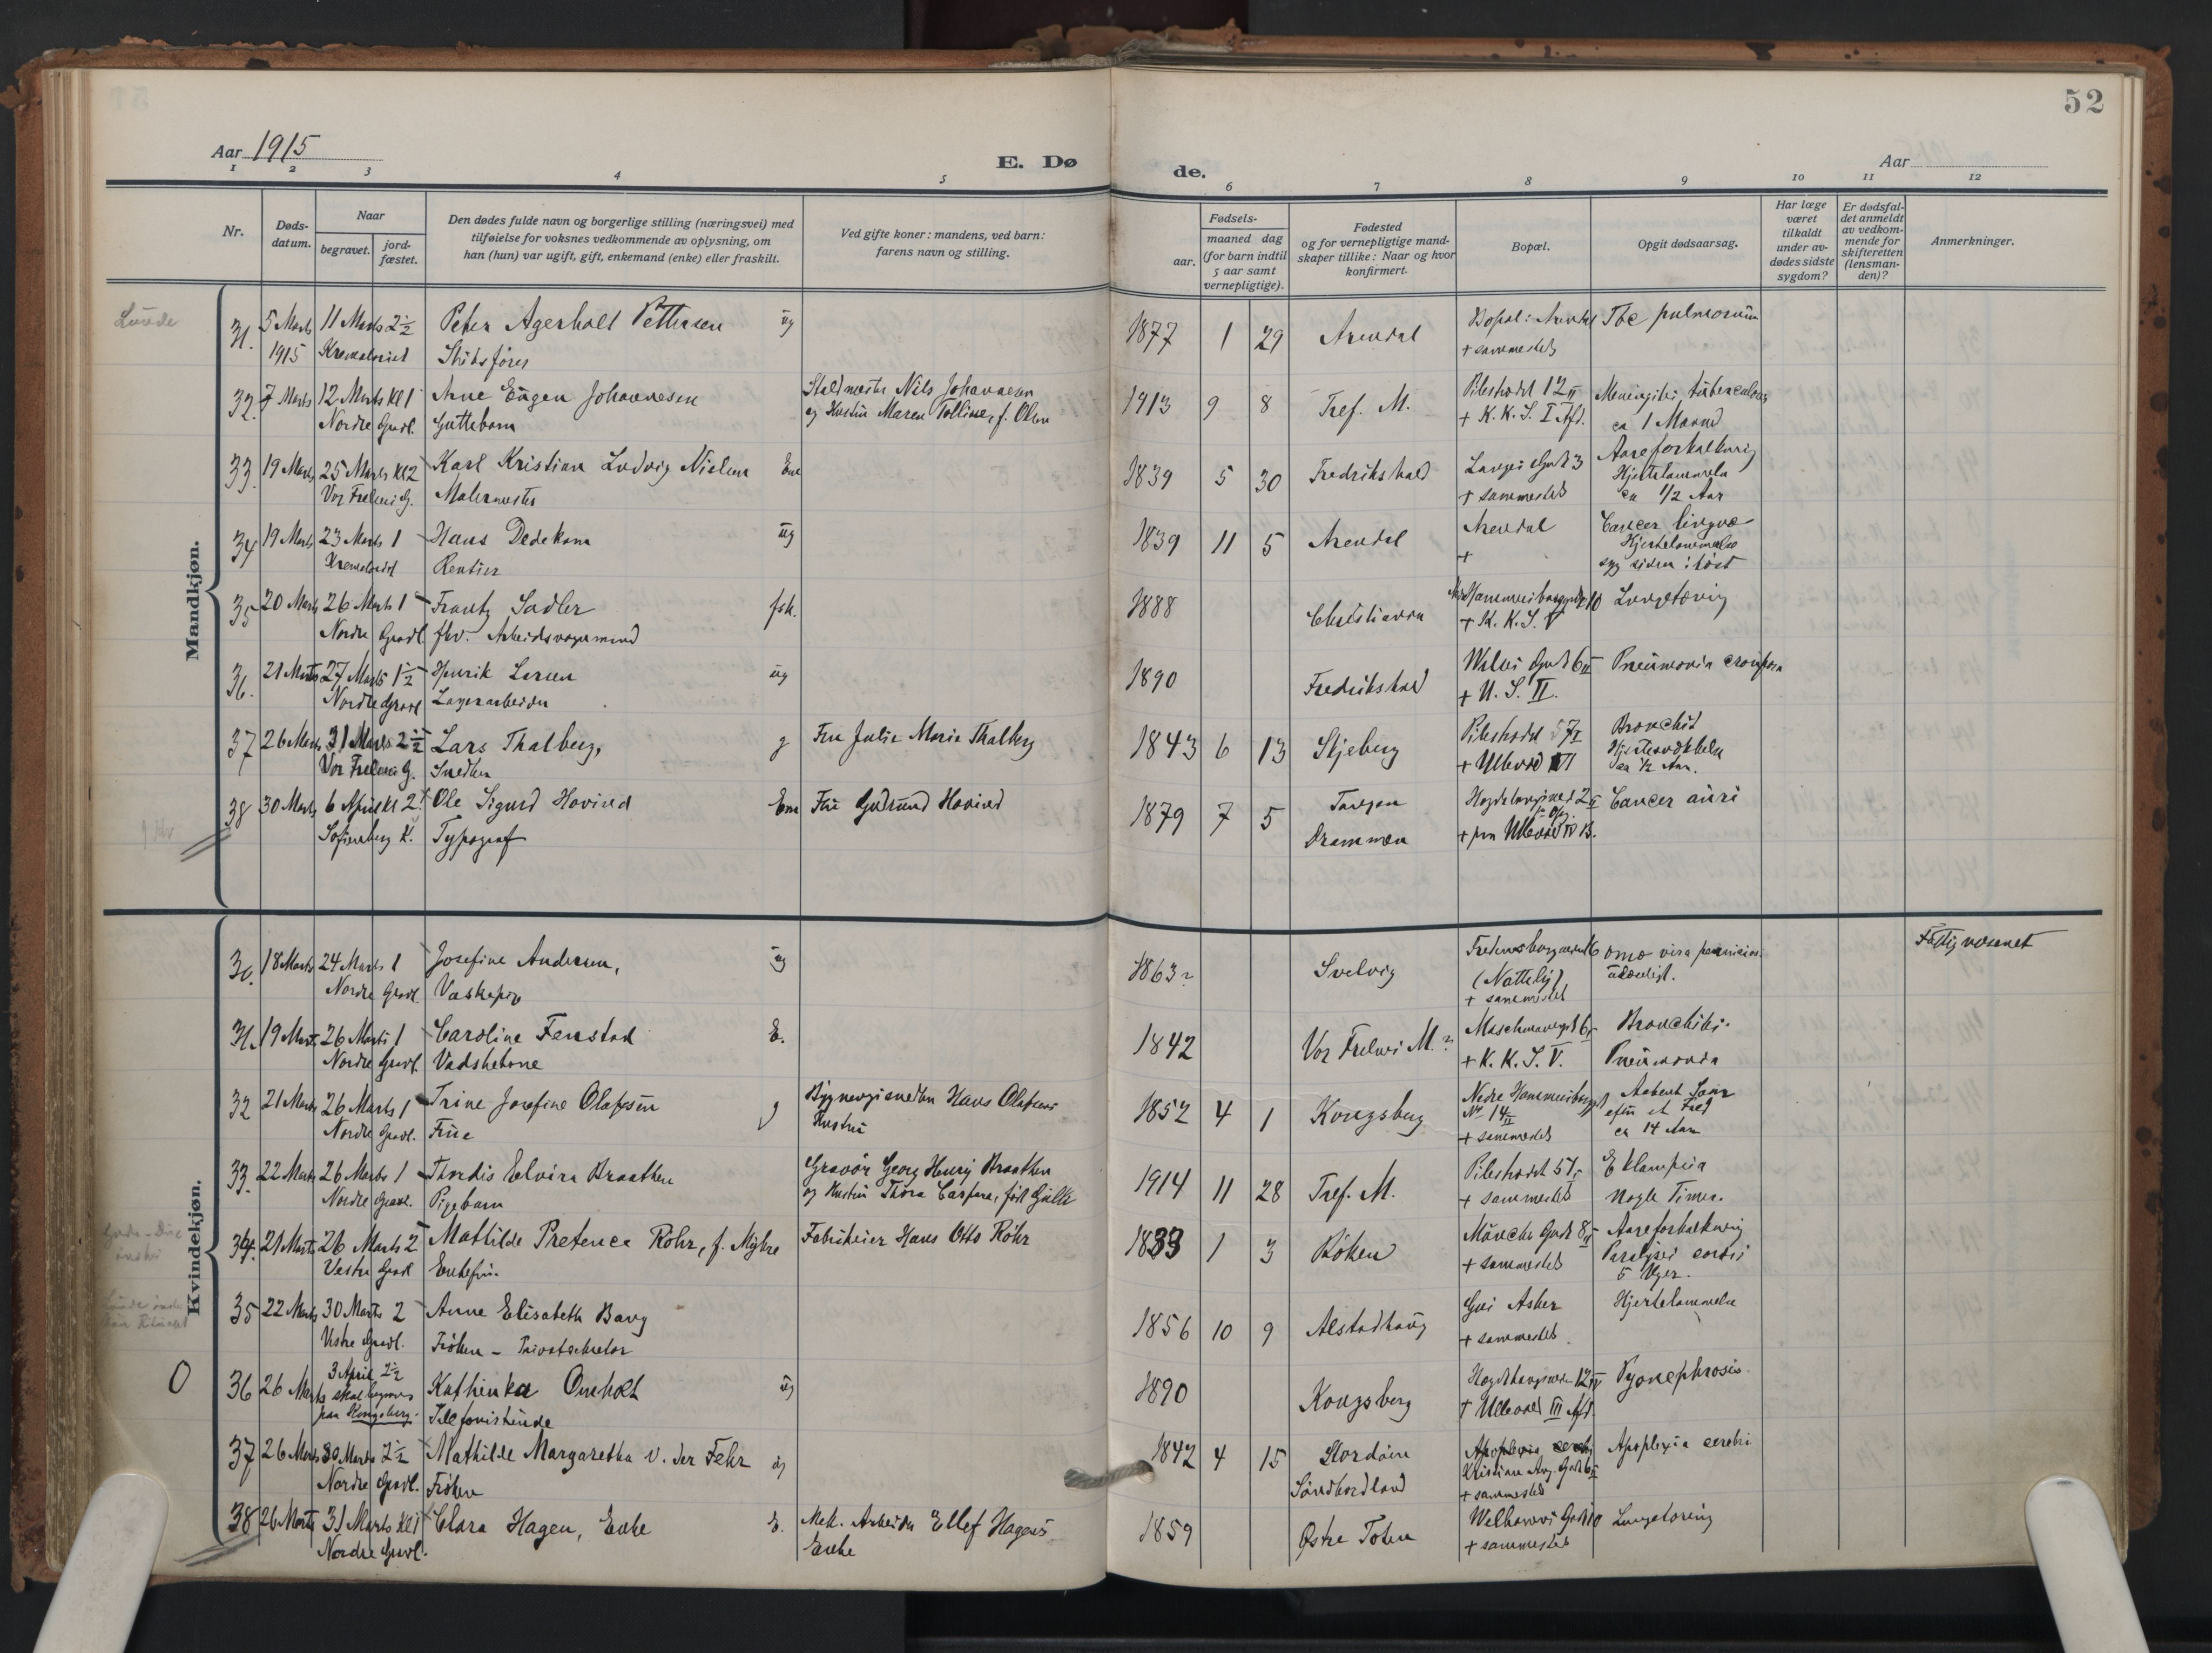 52
Aar 1915
E. Dø
de.
Aar
1 2 3 4 5 6 7 8 9 10 11 12
Nr.
Døds-
datum.
Naar
begravet.
jord-
fæstet.
Den dødes fulde navn og borgerlige stilling (næringsvei) med
tilføielse for voksnes vedkommende av oplysning, om
han (hun) var ugift, gift, enkemand (enke) eller fraskilt.
Ved gifte koner: mandens, ved barn:
farens navn og stilling.
Fødsels-
aar.
maaned dag
(for barn indtil
5 aar samt
vernepligtige).
Fødested
og for vernepligtige mand-
skaper tillike: Naar og hvor
konfirmert.
Bopæl.
Opgit dødsaarsag.
Har læge
været
tilkaldt
under av-
dødes sidste
sygdom?
Er dødsfal-
det anmeldt
av vedkom-
mende for
skifteretten
(lensman-
den)?
Anmerkninger.
Mandkjøn.
Lunde
31. 5 Marts 11 Marts 2½ Peter Agerholt Pettersen ug 1877 1 29 Arendal Bopæl: Arendal Tbc pulmonum
1915 Krematoriet Skibsfører + sammesteds
32. 7 Marts 12 Marts Kl 1 Arne Eugen Johannesen Staldmester Nils Johannesen 1913 9 8 Tref. M. Pilestrædet 12 II Meningitis tuberculosa
Nordre Gravl. Guttebarn og Hustru Maren Colline, f. Olsen + K. K. S. I Afd. ca 1 Maaned
33. 19 Marts 25 Marts Kl 2 Karl Kristian Ludvig Nielsen Em 1839 5 30 Fredrikshald Langes Gade 3 Aareforkalkning
Vor Frelsers G. Malermester + sammesteds Hjertelammelse
ca 1/2 Aar
34 19 Marts 23 Marts 1 Hans Dedekam ug 1839 11 5 Arendal Arendal Cancer lingvæ
Krematoriet Rentier + Hjertelammelse
syg siden i høst
35 20 Marts 26 Marts 1 Frantz Sadler fsk. 1888 Christiania Hammersborggade 10 Lungetæring
Nordre Gravl. fhv. Arbeidsvognmand + K. K. S. V
36. 21 Marts 27 Marts 1½ Henrik Larsen ug 1890 Fredrikshald Wilses Gade 6 II Pneumonia crouposa
Nordre Gravl Lagerarbeider + U. S. II.
37 26 Marts 31 Marts 2½ Lars Thalberg, g Fru Julie Marie Thalberg 1843 6 13 Skjeberg Pilestrædet 57 I Bronchit
Vor Frelsers G. Snedker + Ullevaal VI Hjertesvækkelse
ca ½ Aar.
1 Kr
38 30 Marts 6 April Kl 2 Ole Sigurd Hovind Em Fru Gudrund Hovind 1879 7 5 Tangen Hegdehaugsveien 2 II Cancer auris
Sofienberg K. Typograf Drammen + paa Ullevaal IV B.
Kvindekjøn.
30. 18 Marts 24 Marts 1 Josefine Andersen, ug 1863? Svelvig Fredensborgveien 6 perniciosa Fattigvæsenet
Nordre Gravl. Vaskepige (Natteby)
+ sammesteds
31. 19 Marts 26 Marts 1 Caroline Fenstad E. 1842 Vor Frelsers M.? Maschmansgt 6 Bronchitis
Nordre Gravl. Vadskekone + K. K. S. V. Pneumonia
32 21 Marts 26 Marts 1 Trine Josefine Olafsen g Bygningssnedker Hans Olafsens 1852 4 1 Kongsberg Nedre Hammersborggt Aabent Saar
Nordre Gravl. Frue Hustru No 14 II efter et Fald
+ sammesteds ca 14 Aar
33. 22 Marts 26 Marts 1 Thordis Elvira Braathen Gravør Georg Henry Braathen 1914 11 28 Tref. M. Pilestrædet 57 Eklampsia
Nordre Gravl. Pigebarn og Hustru Thora Caspara, født Gulli + sammesteds nogle Timer.
34. 21 Marts 26 Marts 2 Mathilde Pretence Röhr, f. Myhre Fabrikeier Hans Otto Röhr 1833 1 3 Røken Münchs Gade 8 II Aareforkalkning
Vestre Gravl Enkefru + sammesteds Paralysis cordis
5 Uger.
35 22 Marts 30 Marts 2 Anne Elisabeth Bang 1856 10 9 Alstadhaug Asker Hjertelammelse
Vestre Gravl. Frøken – Privatsekretær + sammesteds
0 36 26 Marts 3 April 2½ Kathinka Omholt ug 1890 Kongsberg Hegdehaugsveien 12 IV Pyonephrosis
skal begraves Telefonistinde + Ullevaal III Afd.
paa Kongsberg.
37 26 Marts 30 Marts 2½ Mathilde Margaretha v. der Fehr ug 1842 4 15 Stordøen Apoplexia cerebri Apoplexia cerebri
Nordre Gravl. Frøken Søndhordland Kristian Aug. Gade 6 II
+ sammesteds
38 26 Marts 31 Marts Kl 1 Clara Hagen, Enke E. Mek. Arbeider Ellef Hagens 1859 Østre Toten Welhavens Gade 10 Lungetæring
Nordre Gravl. Enke + sammesteds